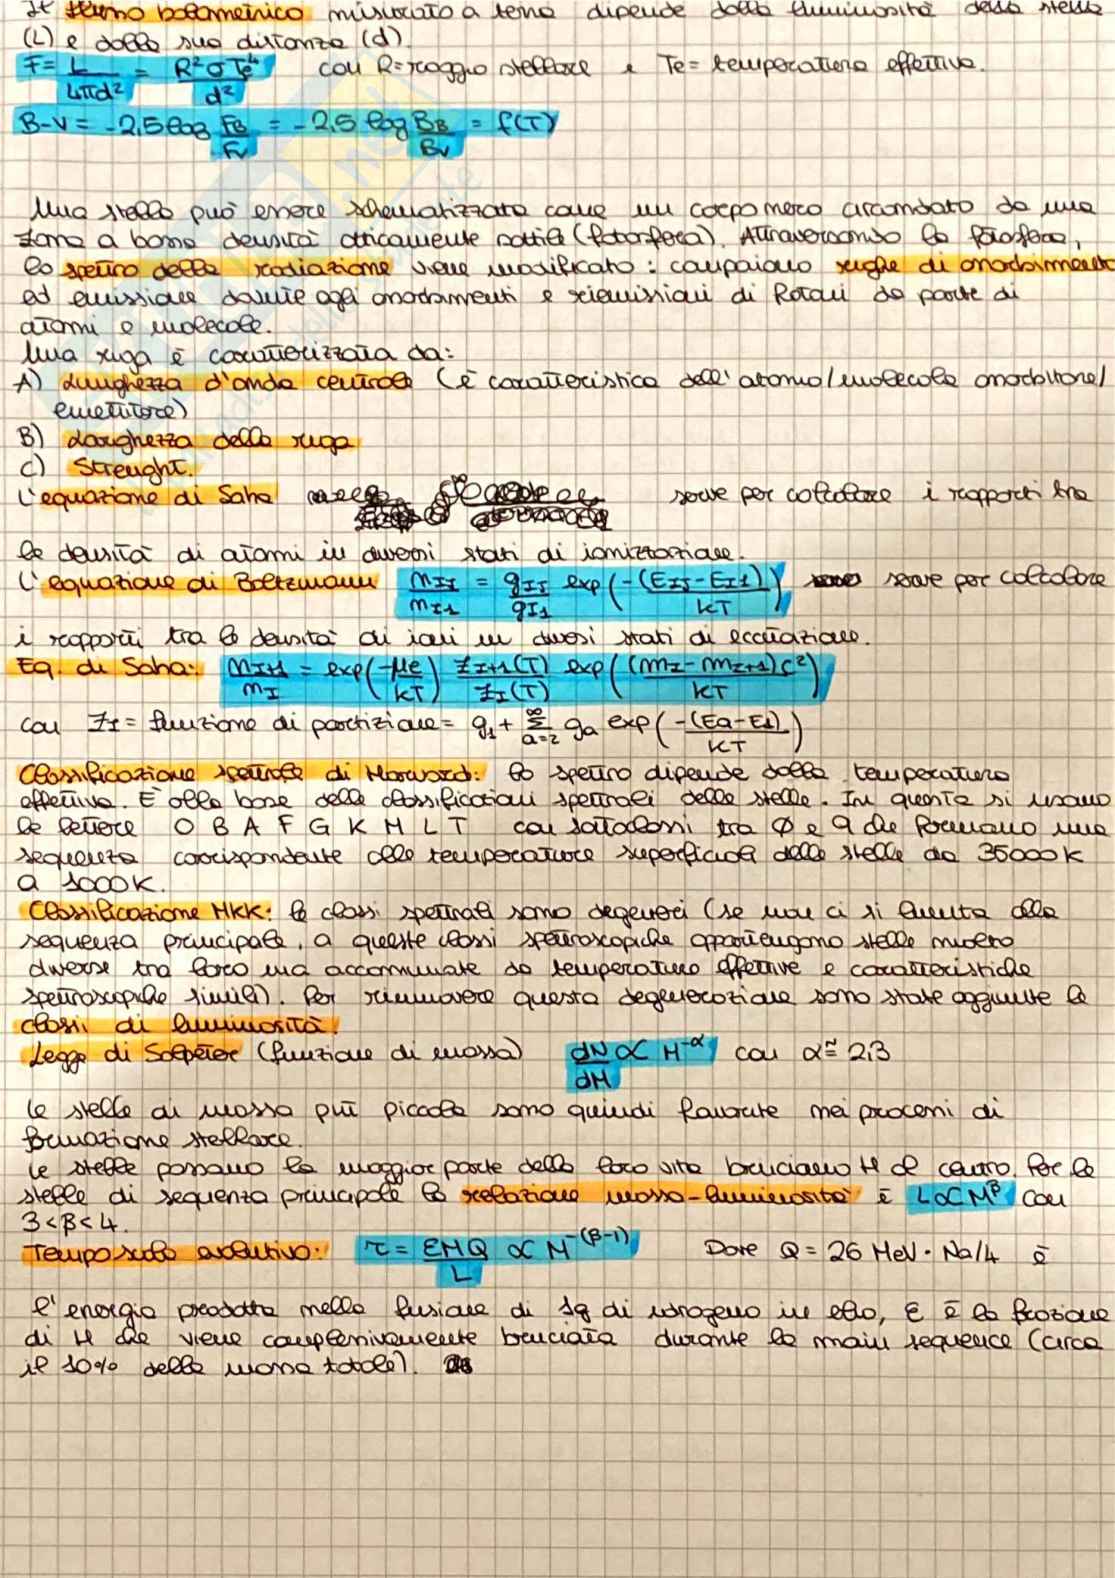 Il flusso bolometrico misurato a terra dipende dalla luminosità della stella
(L) e dalla sua distanza (d).
F = L/4πd² = R²σTe⁴/d² con R=raggio stellare e Te= temperatura effettiva.
B-V = -2,5 log FB/FV = -2,5 log BB/BV = f(T)
Una stella può essere schematizzata come un corpo nero circondato da una
zona a bassa densità otticamente sottile (fotosfera). Attraversando la fotosfera,
lo spettro della radiazione viene modificato: compaiono righe di assorbimento
ed emissione dovute agli assorbimenti e riemissioni di fotoni da parte di
atomi e molecole.
Una riga è caratterizzata da:
A) Lunghezza d'onda centrale (è caratteristica dell'atomo/molecola assorbitore/
emettitore)
B) Larghezza della riga
C) Strenght.
L'equazione di Saha serve per calcolare i rapporti tra
le densità di atomi in diversi stati di ionizzazione.
L'equazione di Boltzmann nIJ/nI1 = gIJ/gI1 exp(-(EIJ-EI1)/kT) serve per calcolare
i rapporti tra le densità di ioni in diversi stati di eccitazione.
Eq. di Saha: nI+1/nI = exp(-μe/kT) ZI+1(T)/ZI(T) exp((mI-mI+1)c²/kT)
con ZI = funzione di partizione = g1 + ∞Σa=2 ga exp(-(Ea-E1)/kT)
Classificazione spettrale di Harvard: lo spettro dipende dalla temperatura
effettiva. È alla base delle classificazioni spettrali delle stelle. In questa si usano
le lettere O B A F G K M L T con sottoclassi tra Ø e 9 che formano una
sequenza corrispondente alle temperature superficiali delle stelle da 35000K
a 1000K.
Classificazione MKK: le classi spettrali sono degeneri (se non ci si limita alla
sequenza principale, a queste classi spettroscopiche appartengono stelle molto
diverse tra loro ma accomunate da temperature effettive e caratteristiche
spettroscopiche simili). Per rimuovere questa degenerazione sono state aggiunte le
classi di luminosità.
Legge di Salpeter (funzione di massa) dN/dM ∝ M^-α con α≅2,3
Le stelle di massa più piccola sono quindi favorite nei processi di
formazione stellare.
Le stelle passano la maggior parte della loro vita bruciano H al centro. Per le
stelle di sequenza principale la relazione massa-luminosità è L∝M^β con
3<β<4.
Tempo scala evolutivo: τ = εMQ/L ∝ M^-(β-1) Dove Q = 26 MeV · Na/4 è
l'energia prodotta nella fusione di 1g di idrogeno in elio, ε è la frazione
di H che viene complessivamente bruciata durante la main sequence (circa
il 10% della massa totale).